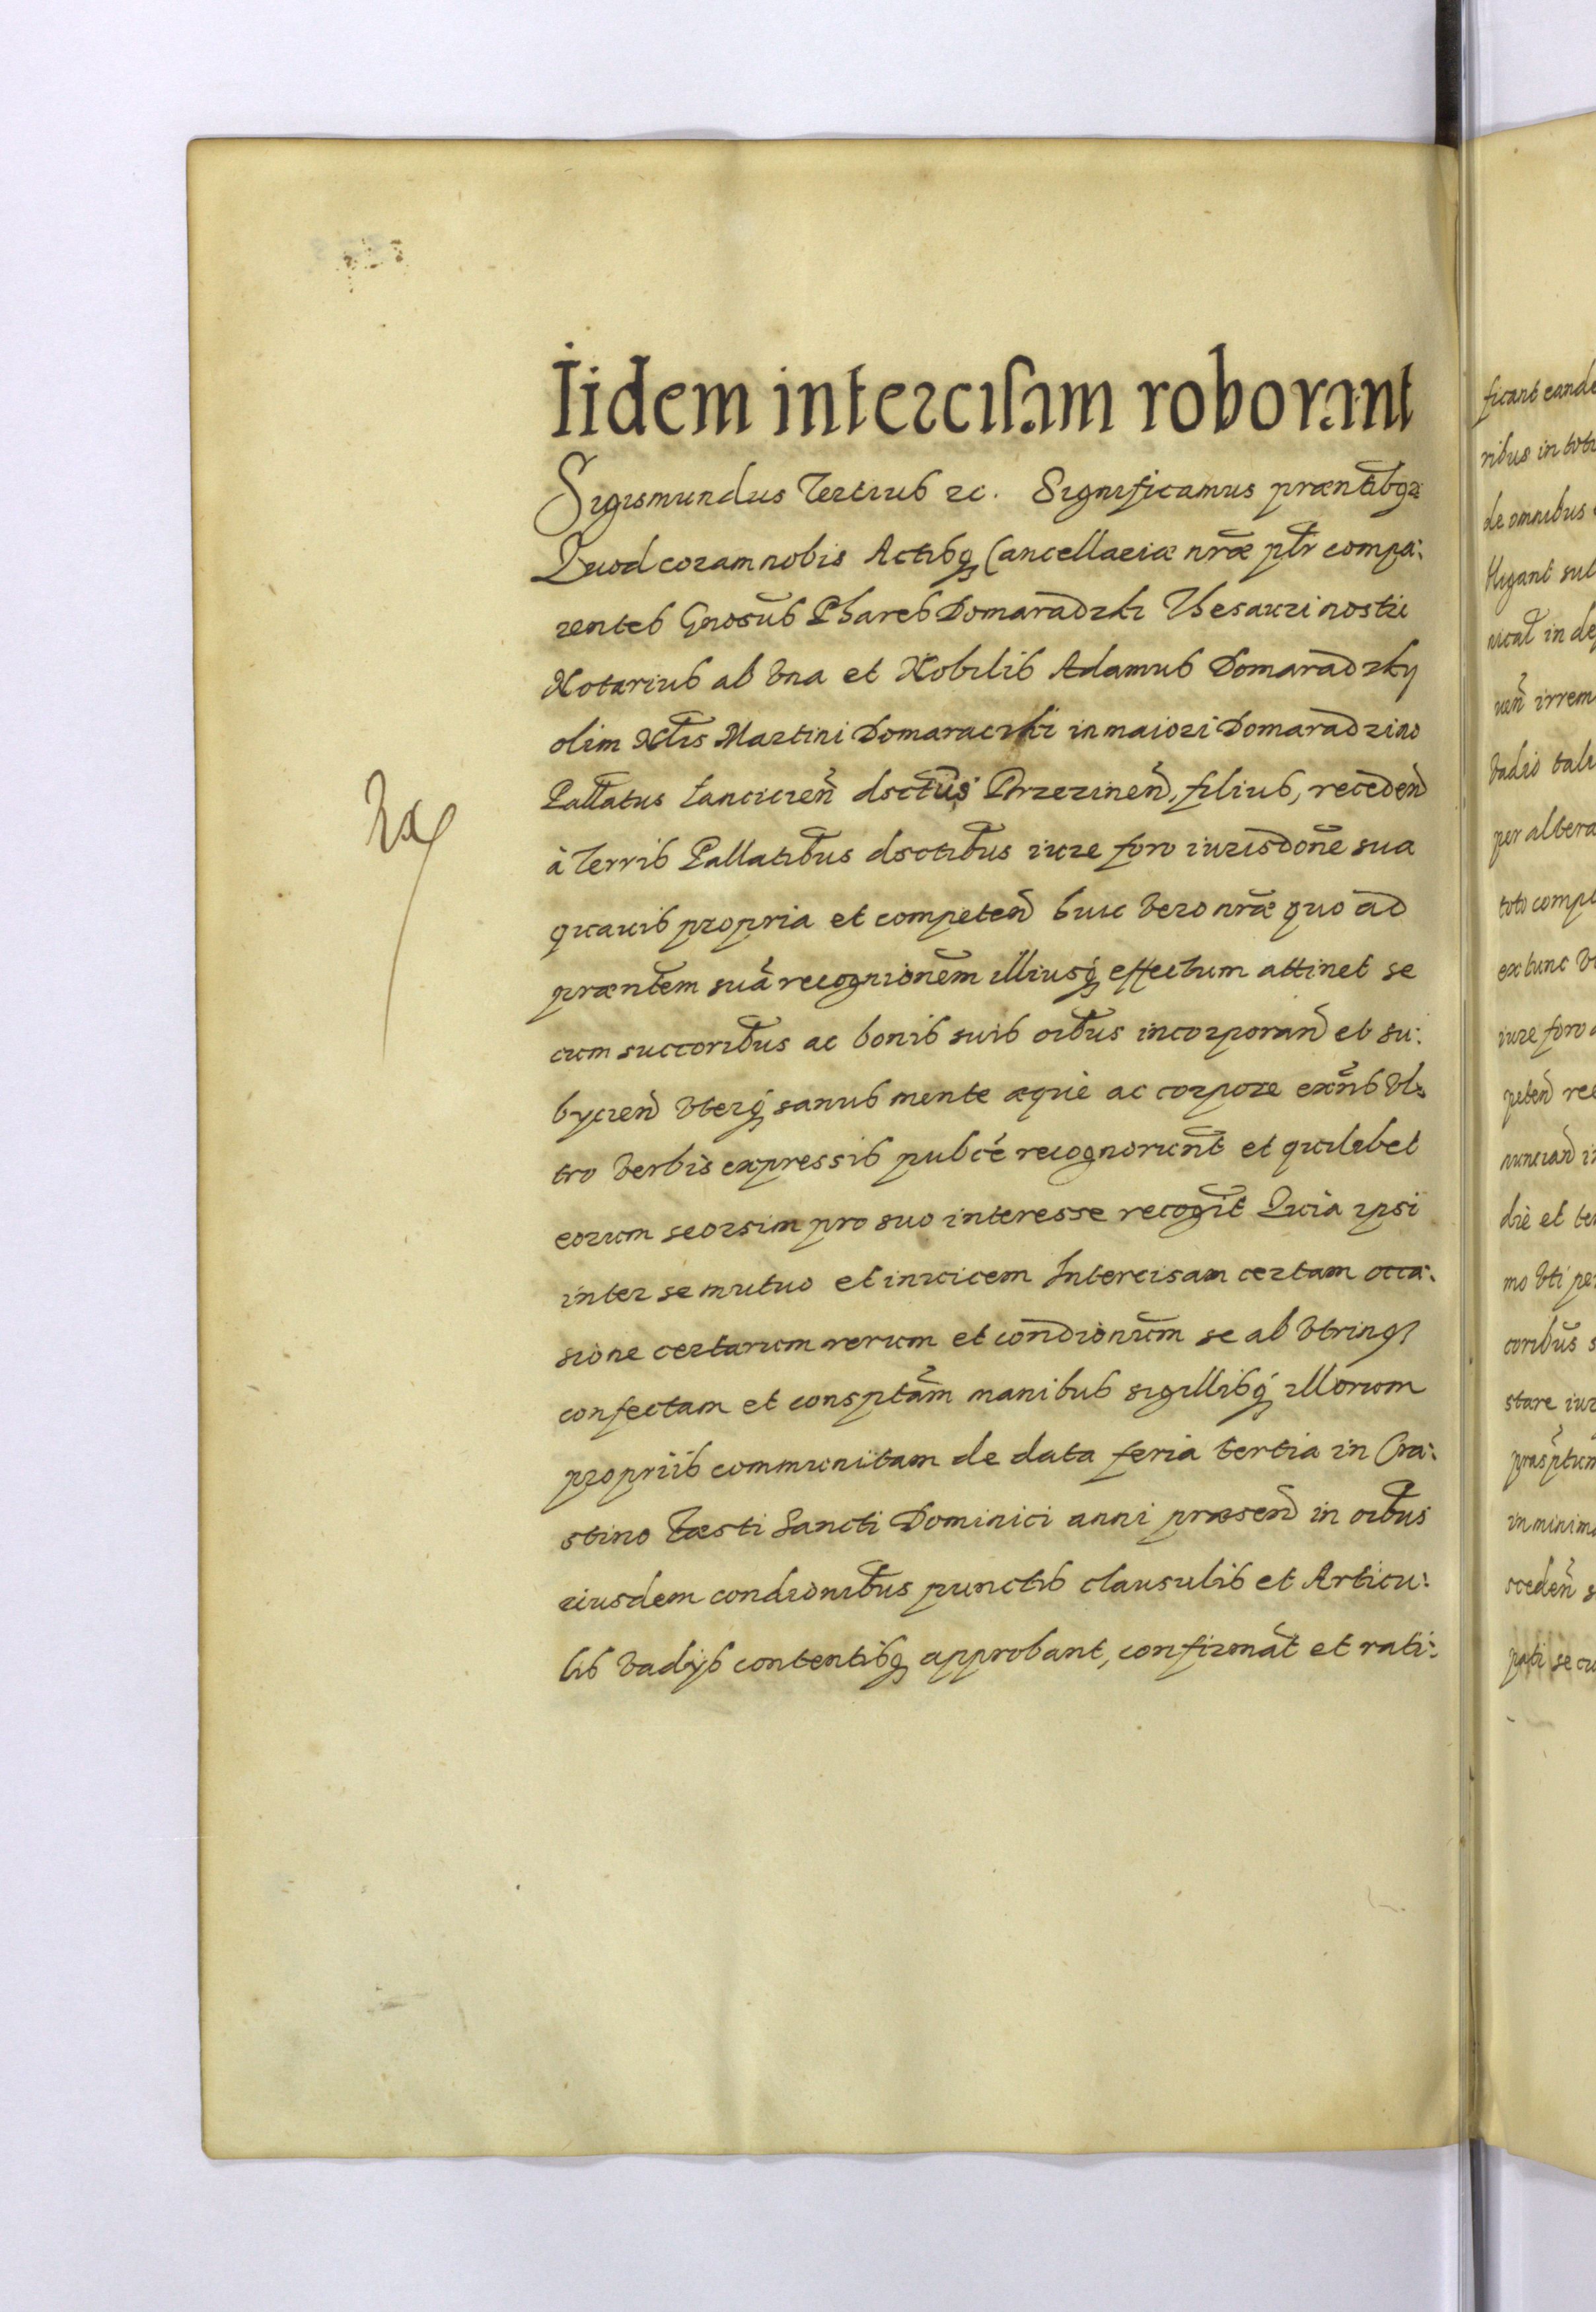 Iidem intercisam roborant
Sigismundus Tertius etc. Significamus præntibq3
Quod coram nobis Actibq3 Cancellariæ nræ plr compa:
rentes Gnosus Phares Domaradzki Thesauri nostri
Notarius ab Vna et Nobilis Adamus Domaradzky
olim Nlis Martini Domaradzki in maiori Domaradzino
Pallatus Lanciciën dsctus Brzezinen, filius, receden
à Terris Pallatibus dsctibus iure foro iurisdone sua
quauis propria et competen huic vero nræ quo ad
præntem suã recognionem illiusq3 effectum attinet se
cum succoribus ac bonis suis oibus incorporan et su:
byicien vterq3 sanus mente æquè ac corpore exñs vl:
tro verbis expressis publcé recognorunt et quilibet
eorum seorsim pro suo interesse recognit Quia ipsi
inter se mutuo et inuicem Intercisam certam occa:
sione certarum rerum et condionum se ab vtrinq3
confectam et consptam manibus sigillibq3 illorum
propriis communitam de data feria tertia in Cra:
stino Fæsti Sancti Dominici anni præsen in oibus
eiusdem condionibus punctis clausulis et Articu:
lis vadijs contentibq3 approbant, confirmãt et rati:
ficant eande
ribus in toto
de omnibus
bligant sub
uen irrem
vadio tali
per altera
toto compl
ex tunc
iure foro
peten rec
nuncian in
die et te
mo vti pe
coribus s
stare iur
præsptum
in minim
sceden s
pati se cu